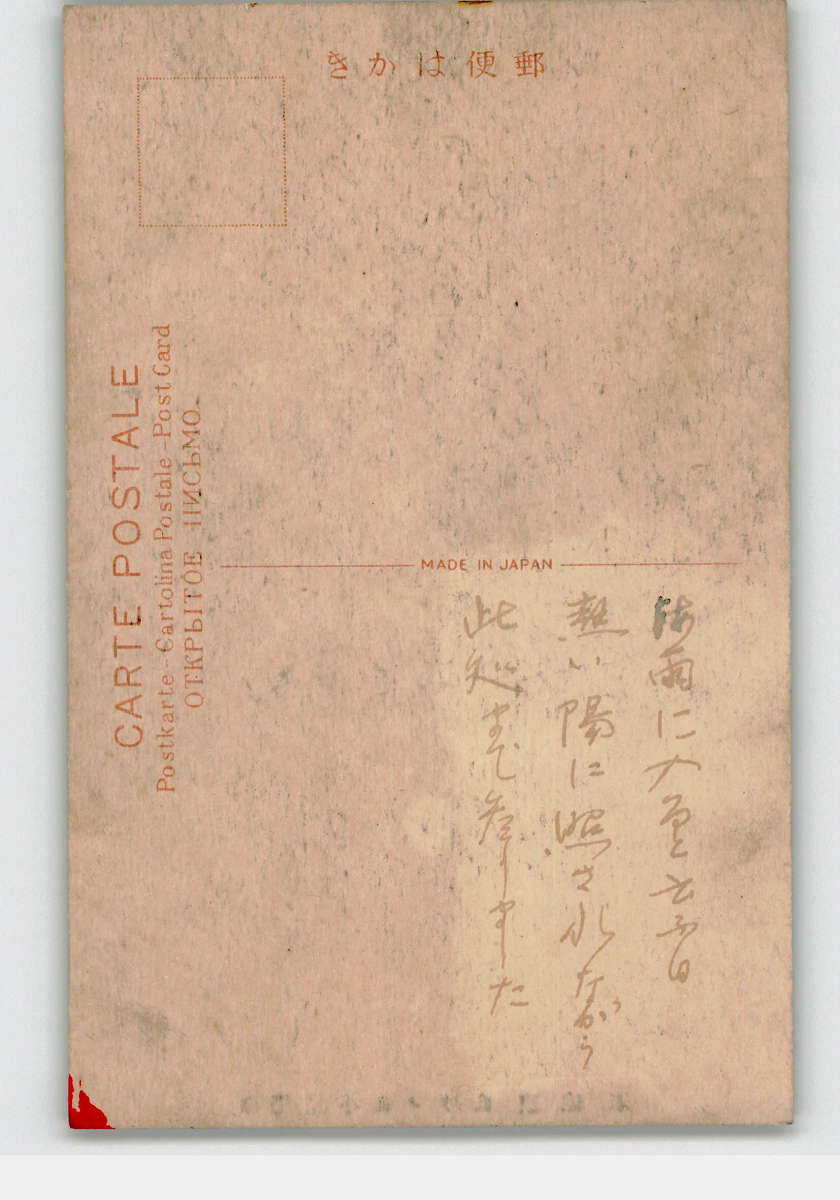 きかは便郵
CARTE POSTALE
Postkarte-Cartolina Postale-Post Card
ОТКРЫТОЕ ПИСЬМО.
MADE IN JAPAN
梅雨に入ると云ふ日
熱い陽に照されながら
此処まで参りました